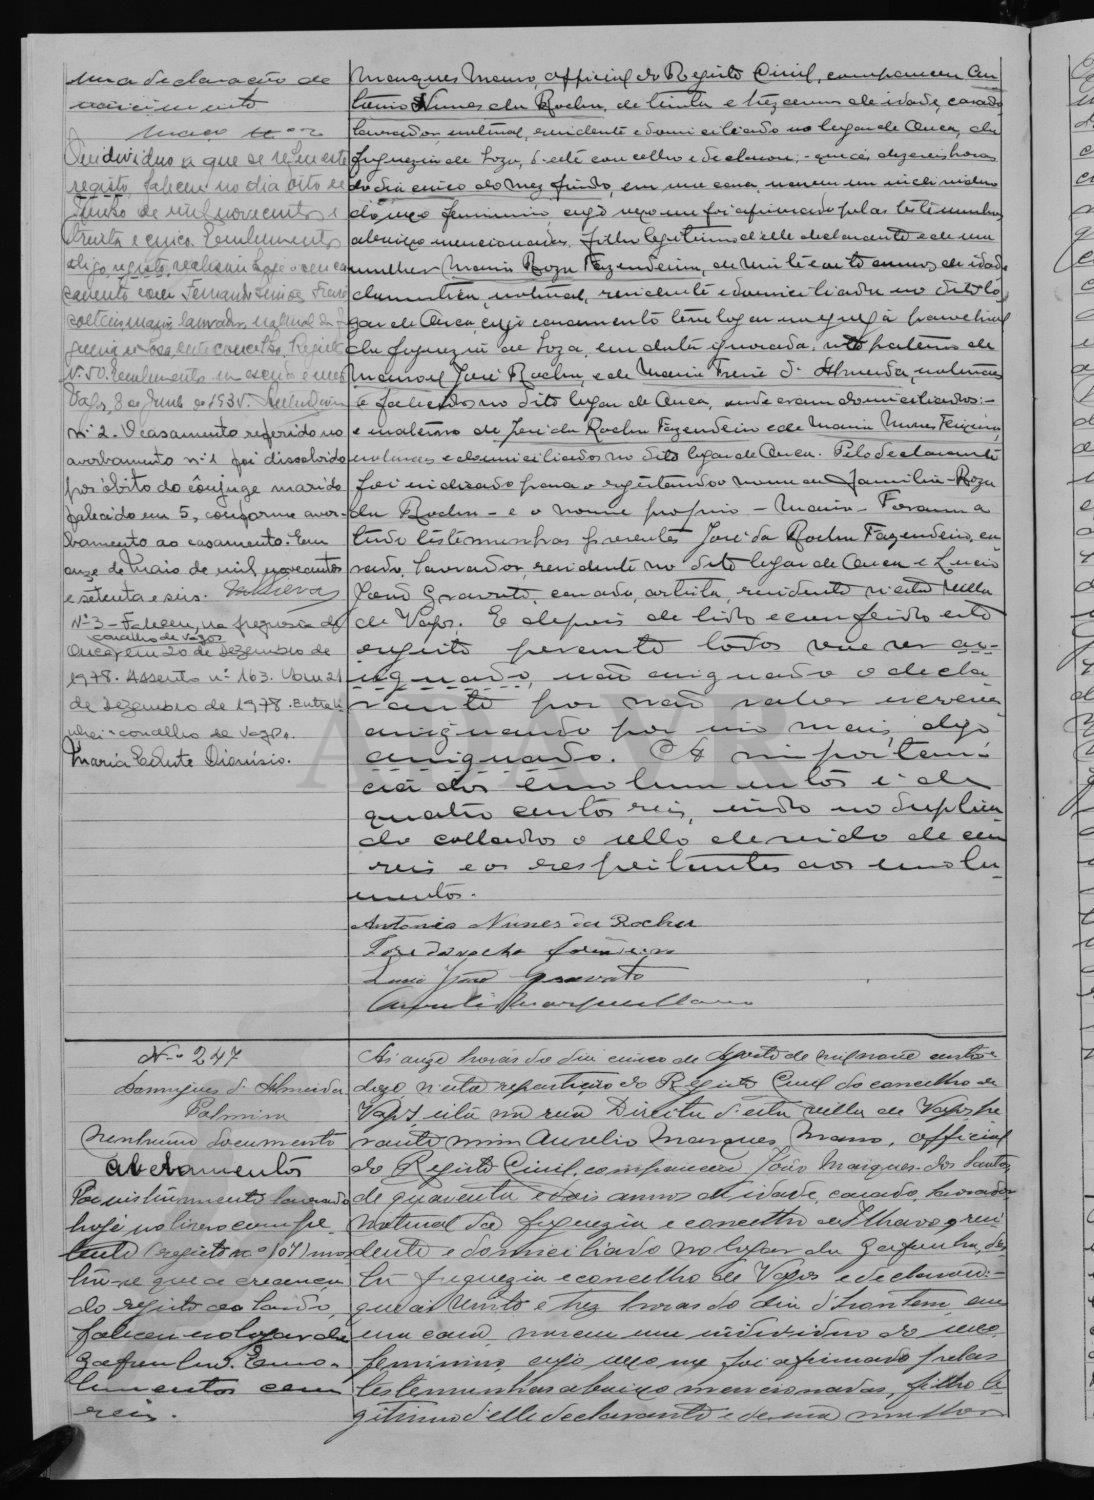 uma declaração de
nascimento
O individuo a que se refere este
registo, faleceu no dia oito de
Junho de mil novecentos e
trinta e cinco. Emolumentos
digo, registo, realizou hoje o seu ca
samento com Fernando Simões Freire
solteiro maior lavrador, natural da f
reguezia de Soza deste concelho. Registo
Nº 50. Emolumentos um escudo e meio
Vagos, 8 de Junho de 1935.
Nº 2. O casamento referido no
averbamento nº 1 foi dissolvido
por óbito do cônjuge marido
falecido em 5, conforme aver-
bamento ao casamento. Em
onze de Maio de mil novecentos
e setenta e seis.
Nº 3 - Faleceu, na freguesia de
concelho de Vagos
Ouca, em 20 de Dezembro de
1978. Assento nº 163. Vagos 21
de Dezembro de 1978. Entreli
nhei = concelho de Vagos.
Maria Edute Dionísio.
Marques Mano, official do Registo Civil, compareceu An
tonio Nunes da Rocha, de trinta e trez annos de idade, casado
lavrador, natural, residente e domiciliado no lugar de Ouca, da
freguezia de Soza, d'este concelho e declarou: - que ás dezeseis horas
do dia cinco do mez findo, em uma casa, nasceu um individuo
do sexo feminino, cujo sexo me foi afirmado pelas testemunhas
abaixo mencionadas, filho legitimo d'elle declarante e de sua
mulher Maria Roza Fazendeira, de vinte e oito annos de idade
domestica, natural, residente e domiciliada no dito lo
gar de Ouca, cujo casamento teve logar na egreja parochial
da freguezia de Soza, em data ignorada; neto paterno de
Manoel José Rocha, e de Maria Freire d'Almeida, naturaes
e falecidos no dito lugar de Ouca, onde eram domiciliados: -
e materno de José da Rocha Fazendeiro e de Maria Nunes Teixeira,
naturaes e domiciliados no dito lugar de Ouca. Pelo declarante
foi indicado para o registando o nome de familia - Roza
da Rocha - e o nome proprio - Maria - Foram a
tudo testemunhas presentes José da Rocha Fazendeiro, ca
sado, lavrador, residente no dito lugar de Ouca e Lucio
João Gravato, casado, artista, residente n'esta villa
de Vagos. E depois de lido e conferido este
registo perante todos vae ser as-
signado, não assignado o decla
rante por não saber escrever
assignando por mim mais, digo
assignado. A importan
cia dos emolumentos é de
quatro centos reis, sendo no duplica
do collados o sello devido de cem
reis e os respeitantes aos emolu-
mentos.
Antonio Nunes da Rocha
Jose da rocha fazendeiro
Lucio João Gravato
Aurelio Marques Mano
N.º 247
Domingues d'Almeida
Palmira
Nenhum documento
Averbamentos
Por
hoje no livro compe-
tente (registo nº 107) mos
tra-se que a creança
do registo ao lado,
faleceu no lugar da
Gafanha. Emo-
lumentos cem
reis.
Ás onze horas do dia cinco de Agosto de mil nove centos e
doze, n'esta repartição do Registo Civil do concelho de
Vagos, sita na rua Direita d'esta villa de Vagos, pe
rante mim Aurelio Marques Mano, official
do Registo Civil, compareceu João Marques dos Santos,
de quarenta e dois annos de idade, casado, lavrador
natural da freguezia e concelho de Ilhavo, resi
dente e domiciliado no lugar da Gafanha, des
ta freguezia e concelho de Vagos e declarou: -
que ás vinte e trez horas do dia d'hontem, em
uma casa, nasceu um individuo do sexo
feminino, cujo sexo me foi afirmado pelas
testemunhas abaixo mencionadas, filho le
gitimo d'elle declarante e de sua mulher